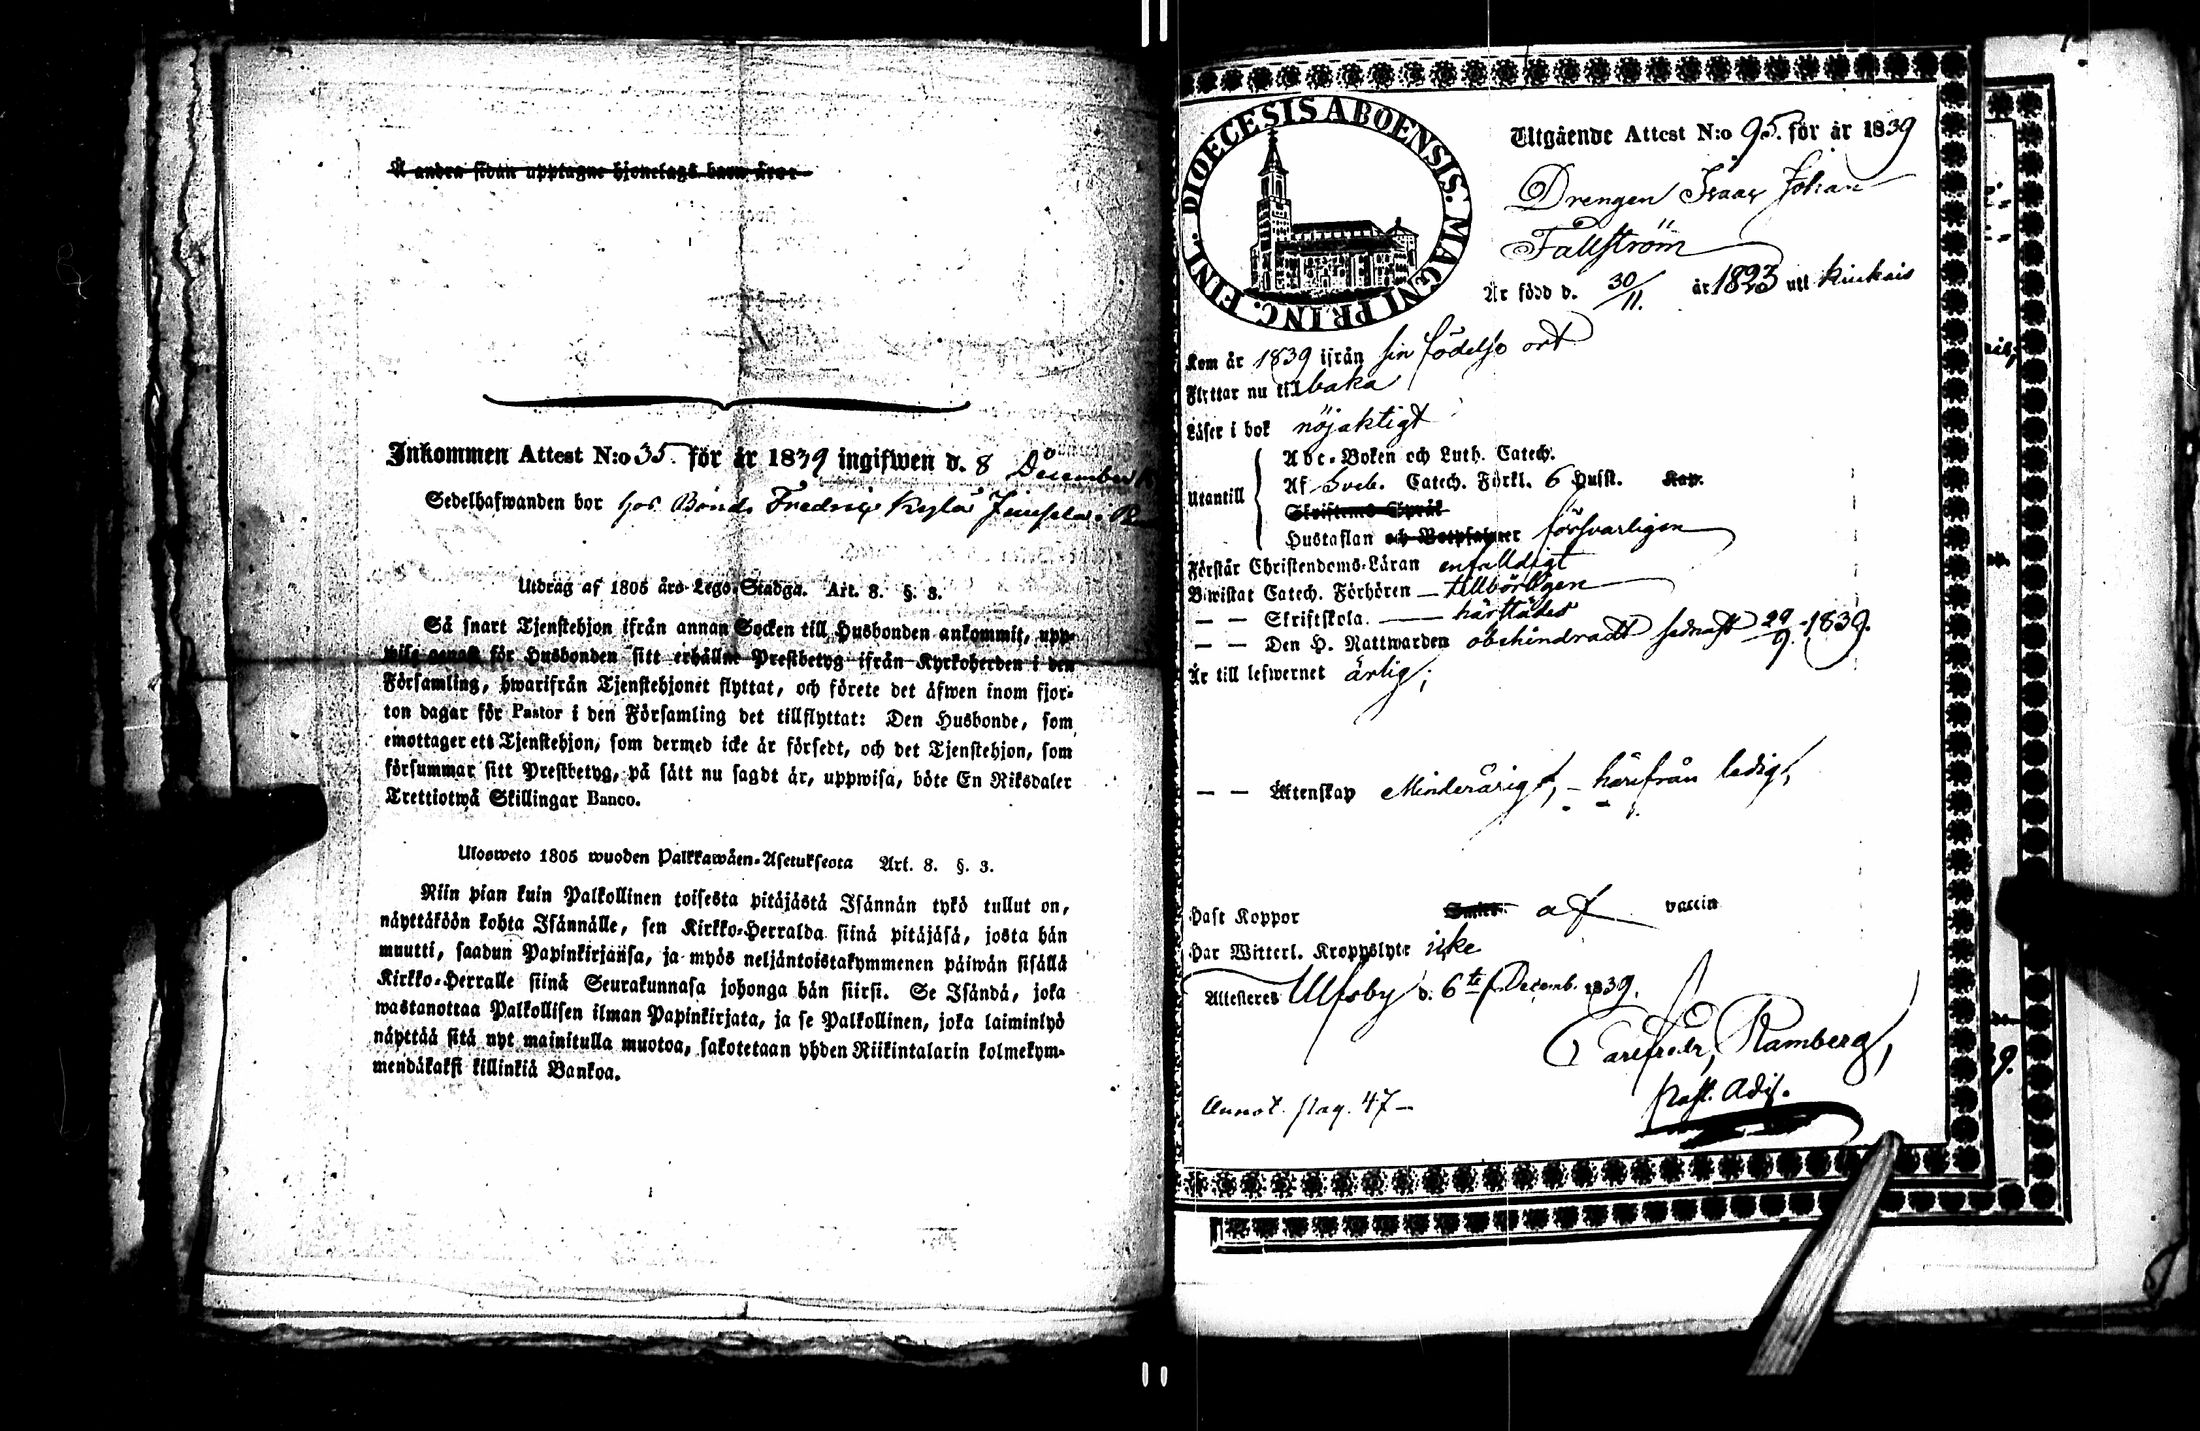 Å andra sidan upptagne hjonelags barn äro:
Inkommen Attest N:o 35. för år 1839 ingifwen d. 8 December
Sedelhafwanden bor hos Bond. Fredric
Utdrag af 1805 års Lego-Stadga. Art. 8. §. 3.
Så snart Tjenstehjon ifrån annan Socken till Husbonden ankommit, upp-
wise genast för Husbonden sitt erhållne Prestbetyg ifrån Kyrkoherden i den
Församling, hwarifrån Tjenstehjonet flyttat, och förete det äfwen inom fjor-
ton dagar för Pastor i den Församling det tillflyttat: Den Husbonde, som
emottager ett Tjenstehjon, som dermed icke är försedt, och det Tjenstehjon, som
försummar sitt Prestbetyg, på sätt nu sagdt är, uppwisa, böte En Riksdaler
Trettiotwå Skillingar Banco.
Ulosweto 1805 wuoden Palkkawäen-Asetuksesta Art. 8. §. 3.
Niin pian kuin Palkollinen toisesta pitäjästä Isännän tykö tullut on,
näyttäköön kohta Isännälle, sen Kirkko-Herralda siinä pitäjäsä, josta hän
muutti, saadun Papinkirjansa, ja myös neljäntoistakymmenen päiwän sisällä
Kirkko-Herralle siinä Seurakunnasa johonga hän siirsi. Se Isändä, joka
wastanottaa Palkollisen ilman Papinkirjata, ja se Palkollinen, joka laiminlyö
näyttää sitä nyt mainitulla muotoa, sakotetaan yhden Riikintalarin kolmekym-
mendäkaksi killinkiä Bankoa.
DIOECESIS ABOENSIS. MAGNI PRINC. FINL.
Utgående Attest N:o 95. för år 1839
Drengen Isaac Johan
Fallström
Är född d. 30/11. år 1823 uti Kiukais
Kom år 1839 ifrån sin födelse ort
Flyttar nu tillbaka
Läser i bok nöjaktigt
Utantill
Abc-Boken och Luth. Catech.
Af Sveb. Catech. Förkl. 6 Hufst. Kap.
Skriftens Språk
Hustaflan och Botpsalmer försvarligen
Förstår Christendoms-Läran enfalldigt
Biwistat Catech. Förhören — tillbörligen
— — Skriftskola. — härstädes
— — Den H. Nattwarden obehindradt sednast 29/9. 1839.
Är till lefwernet ärlig;
— — Äktenskap Minderårigt, – härifrån ledig,
Haft Koppor Smitt. af vaccin
Har Witterl. Kroppslyte icke
Attesteras Ulfsby d. 6te Decemb. 1839.
Carl Fredr. Ramberg,
Past. Adj.
Annot. pag. 47 –